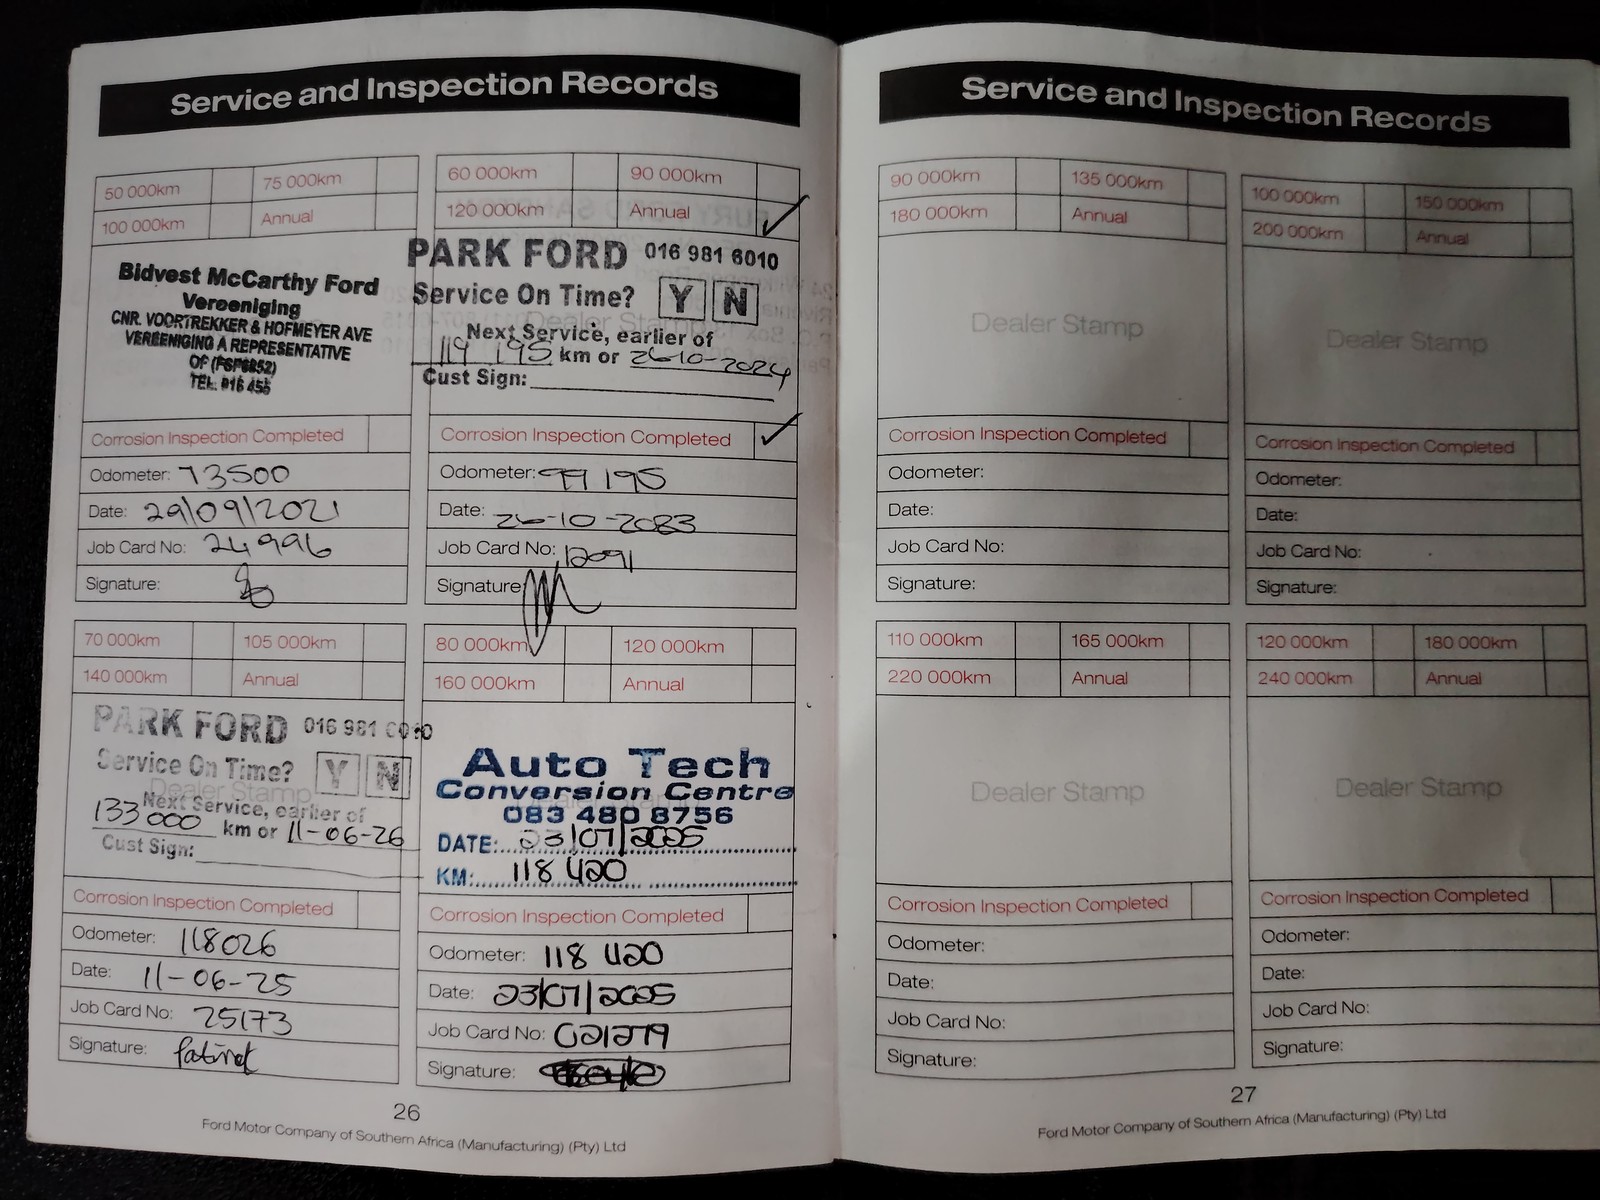 Service and Inspection Records
50 000km 75 000km
100 000km Annual
Bidvest McCarthy Ford
Vereeniging
CNR. VOORTREKKER & HOFMEYER AVE
VEREENIGING A REPRESENTATIVE
OF (FSP6852)
TEL. 016 455
Corrosion Inspection Completed
Odometer: 73500
Date: 29/09/2021
Job Card No: 24996
Signature:
60 000km 90 000km
120 000km Annual ✓
PARK FORD 016 981 6010
Service On Time? Y N
Next Service, earlier of
119 195 km or 26-10-2024
Cust Sign:
Corrosion Inspection Completed ✓
Odometer: 99 195
Date: 26-10-2023
Job Card No: 12091
Signature
70 000km 105 000km
140 000km Annual
PARK FORD 016 981 6010
Service On Time? Y N
Dealer Stamp
Next Service, earlier of
133 000 km or 11-06-26
Cust Sign:
Corrosion Inspection Completed
Odometer: 118026
Date: 11-06-25
Job Card No: 25173
Signature:
80 000km 120 000km
160 000km Annual
Auto Tech
Conversion Centre
083 480 8756
DATE: 23/07/2025
KM: 118 420
Corrosion Inspection Completed
Odometer: 118 420
Date: 23/07/2025
Job Card No: 021279
Signature:
26
Ford Motor Company of Southern Africa (Manufacturing) (Pty) Ltd
Service and Inspection Records
90 000km 135 000km
180 000km Annual
Dealer Stamp
Corrosion Inspection Completed
Odometer:
Date:
Job Card No:
Signature:
100 000km 150 000km
200 000km Annual
Dealer Stamp
Corrosion Inspection Completed
Odometer:
Date:
Job Card No:
Signature:
110 000km 165 000km
220 000km Annual
Dealer Stamp
Corrosion Inspection Completed
Odometer:
Date:
Job Card No:
Signature:
120 000km 180 000km
240 000km Annual
Dealer Stamp
Corrosion Inspection Completed
Odometer:
Date:
Job Card No:
Signature:
27
Ford Motor Company of Southern Africa (Manufacturing) (Pty) Ltd